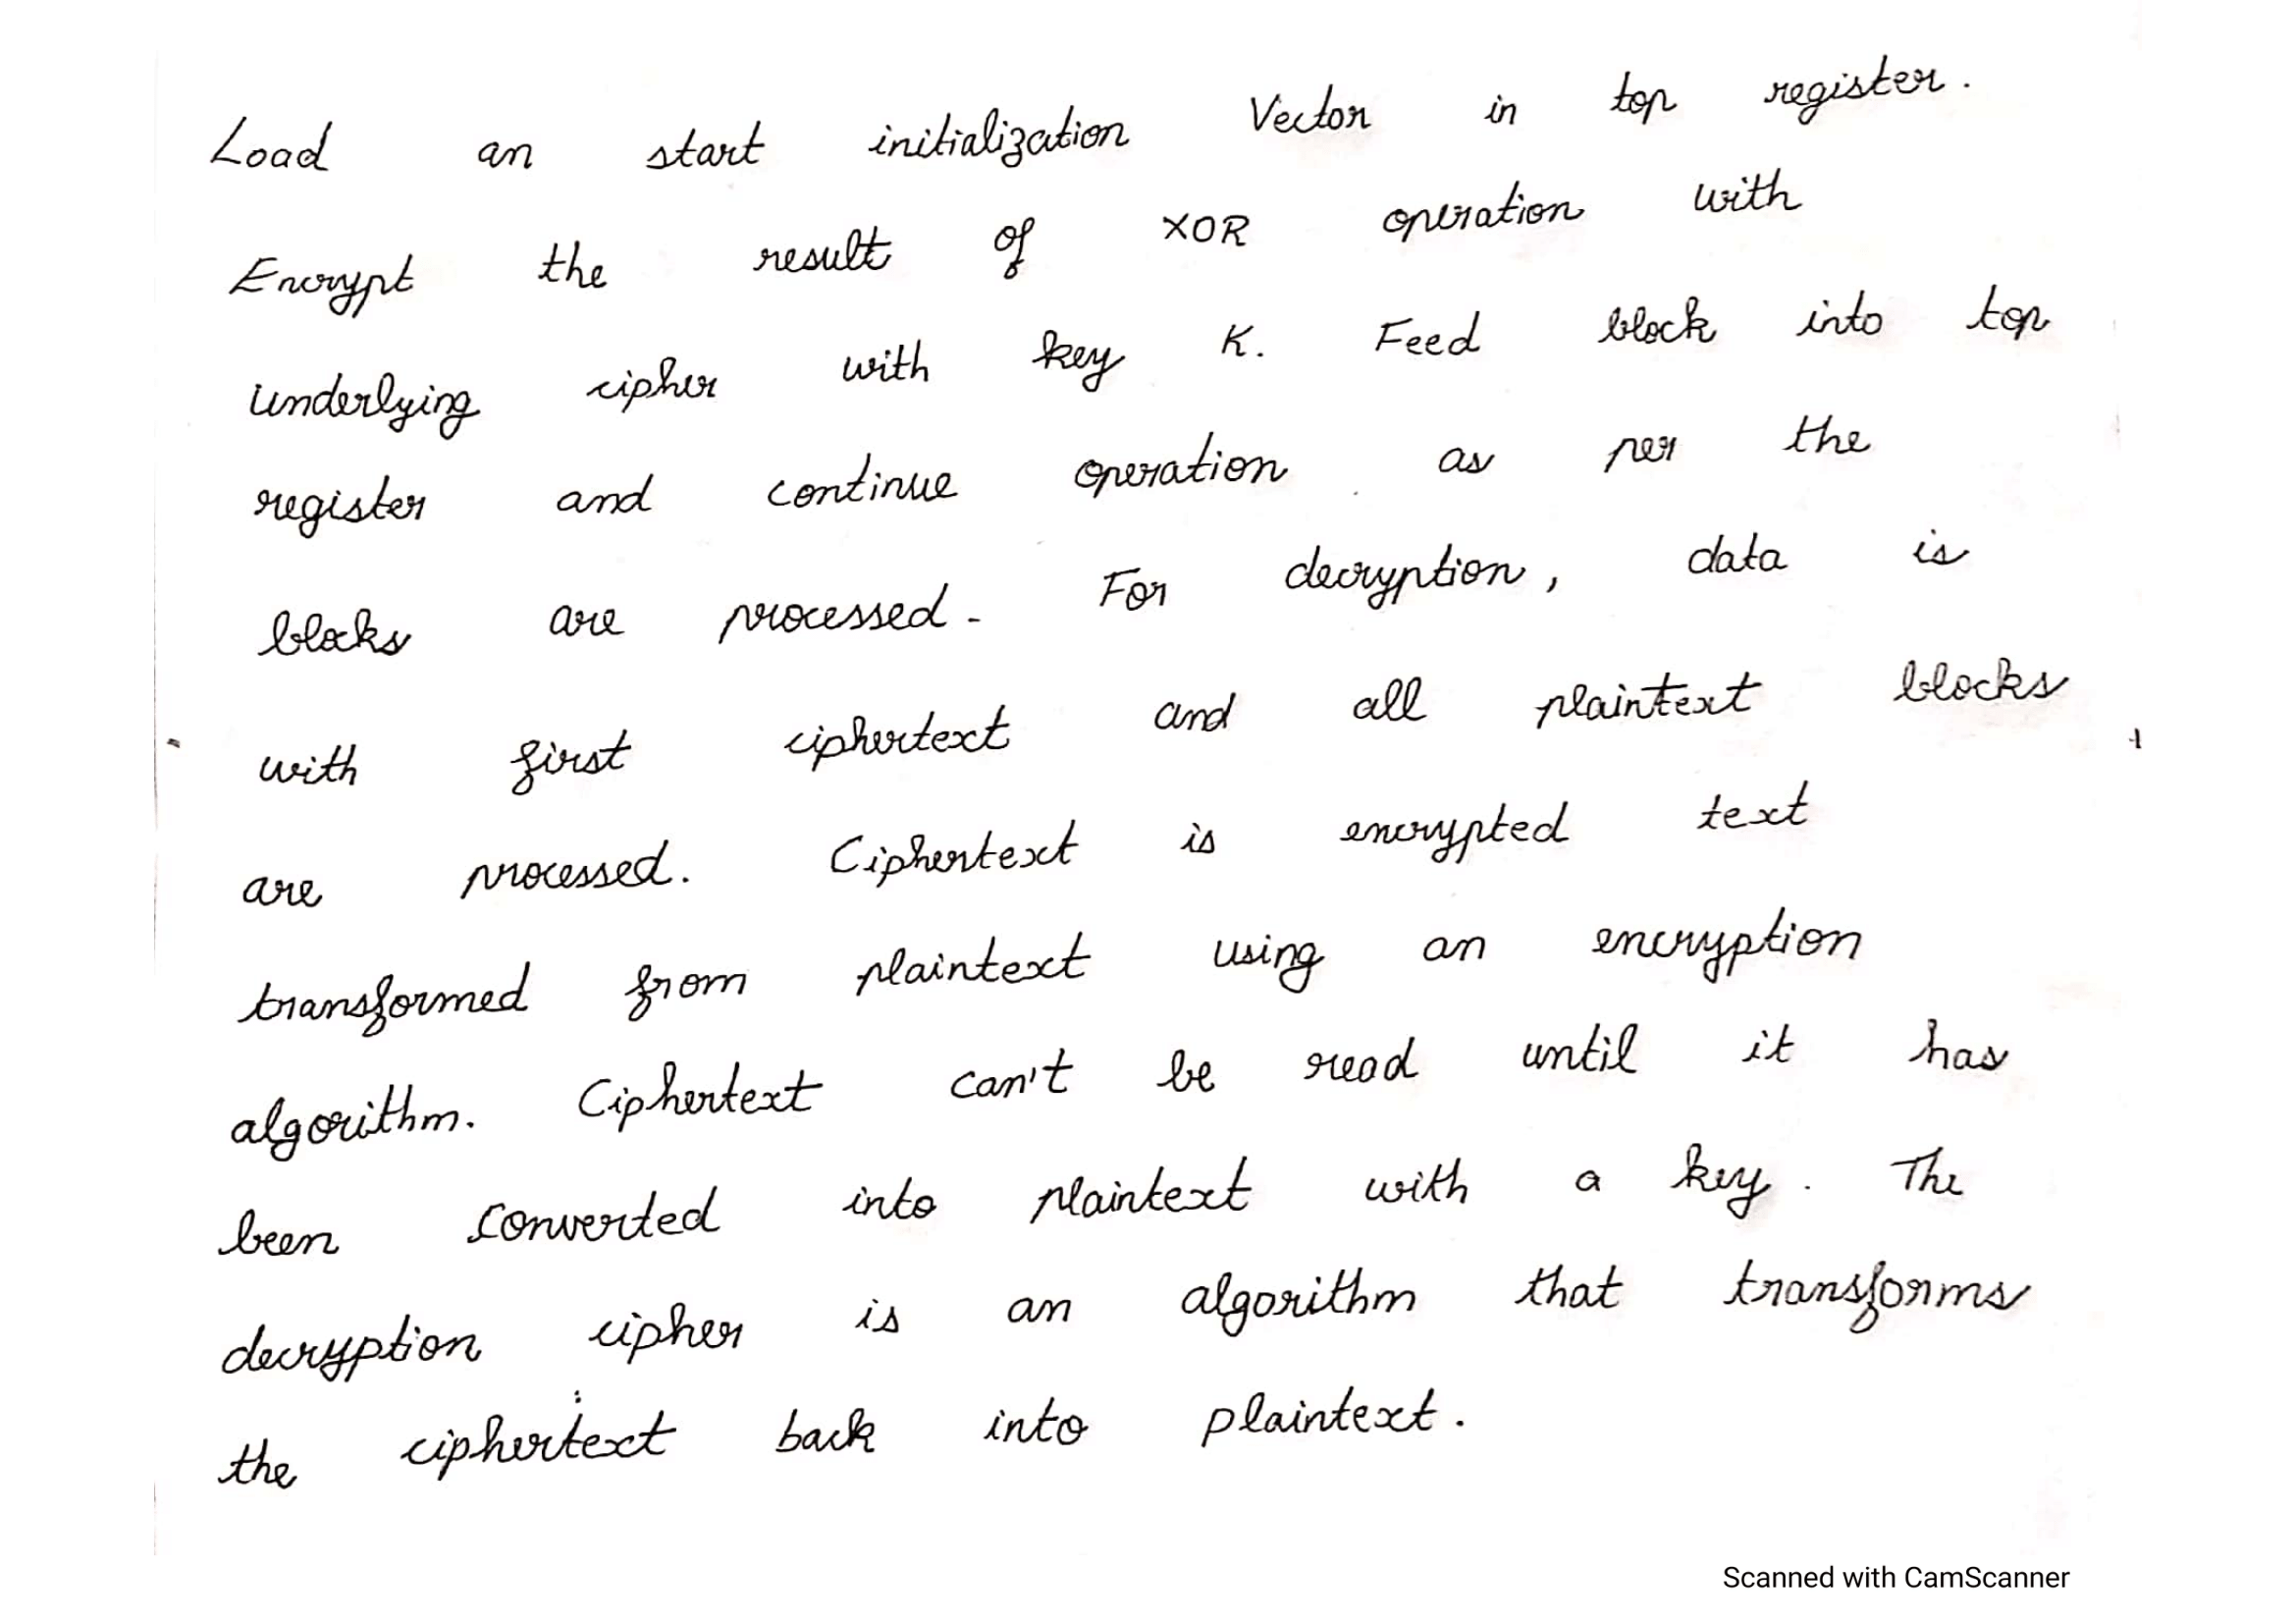 Load an start initialization Vector in top register.
Encrypt the result of XOR operation with
underlying cipher with key K. Feed block into top
register and continue operation as per the
blocks are processed. For decryption, data is
with first ciphertext and all plaintext blocks
are processed. Ciphertext is encrypted text
transformed from plaintext using an encryption
algorithm. Ciphertext can't be read until it has
been converted into plaintext with a key. The
decryption cipher is an algorithm that transforms
the ciphertext back into plaintext.
Scanned with CamScanner